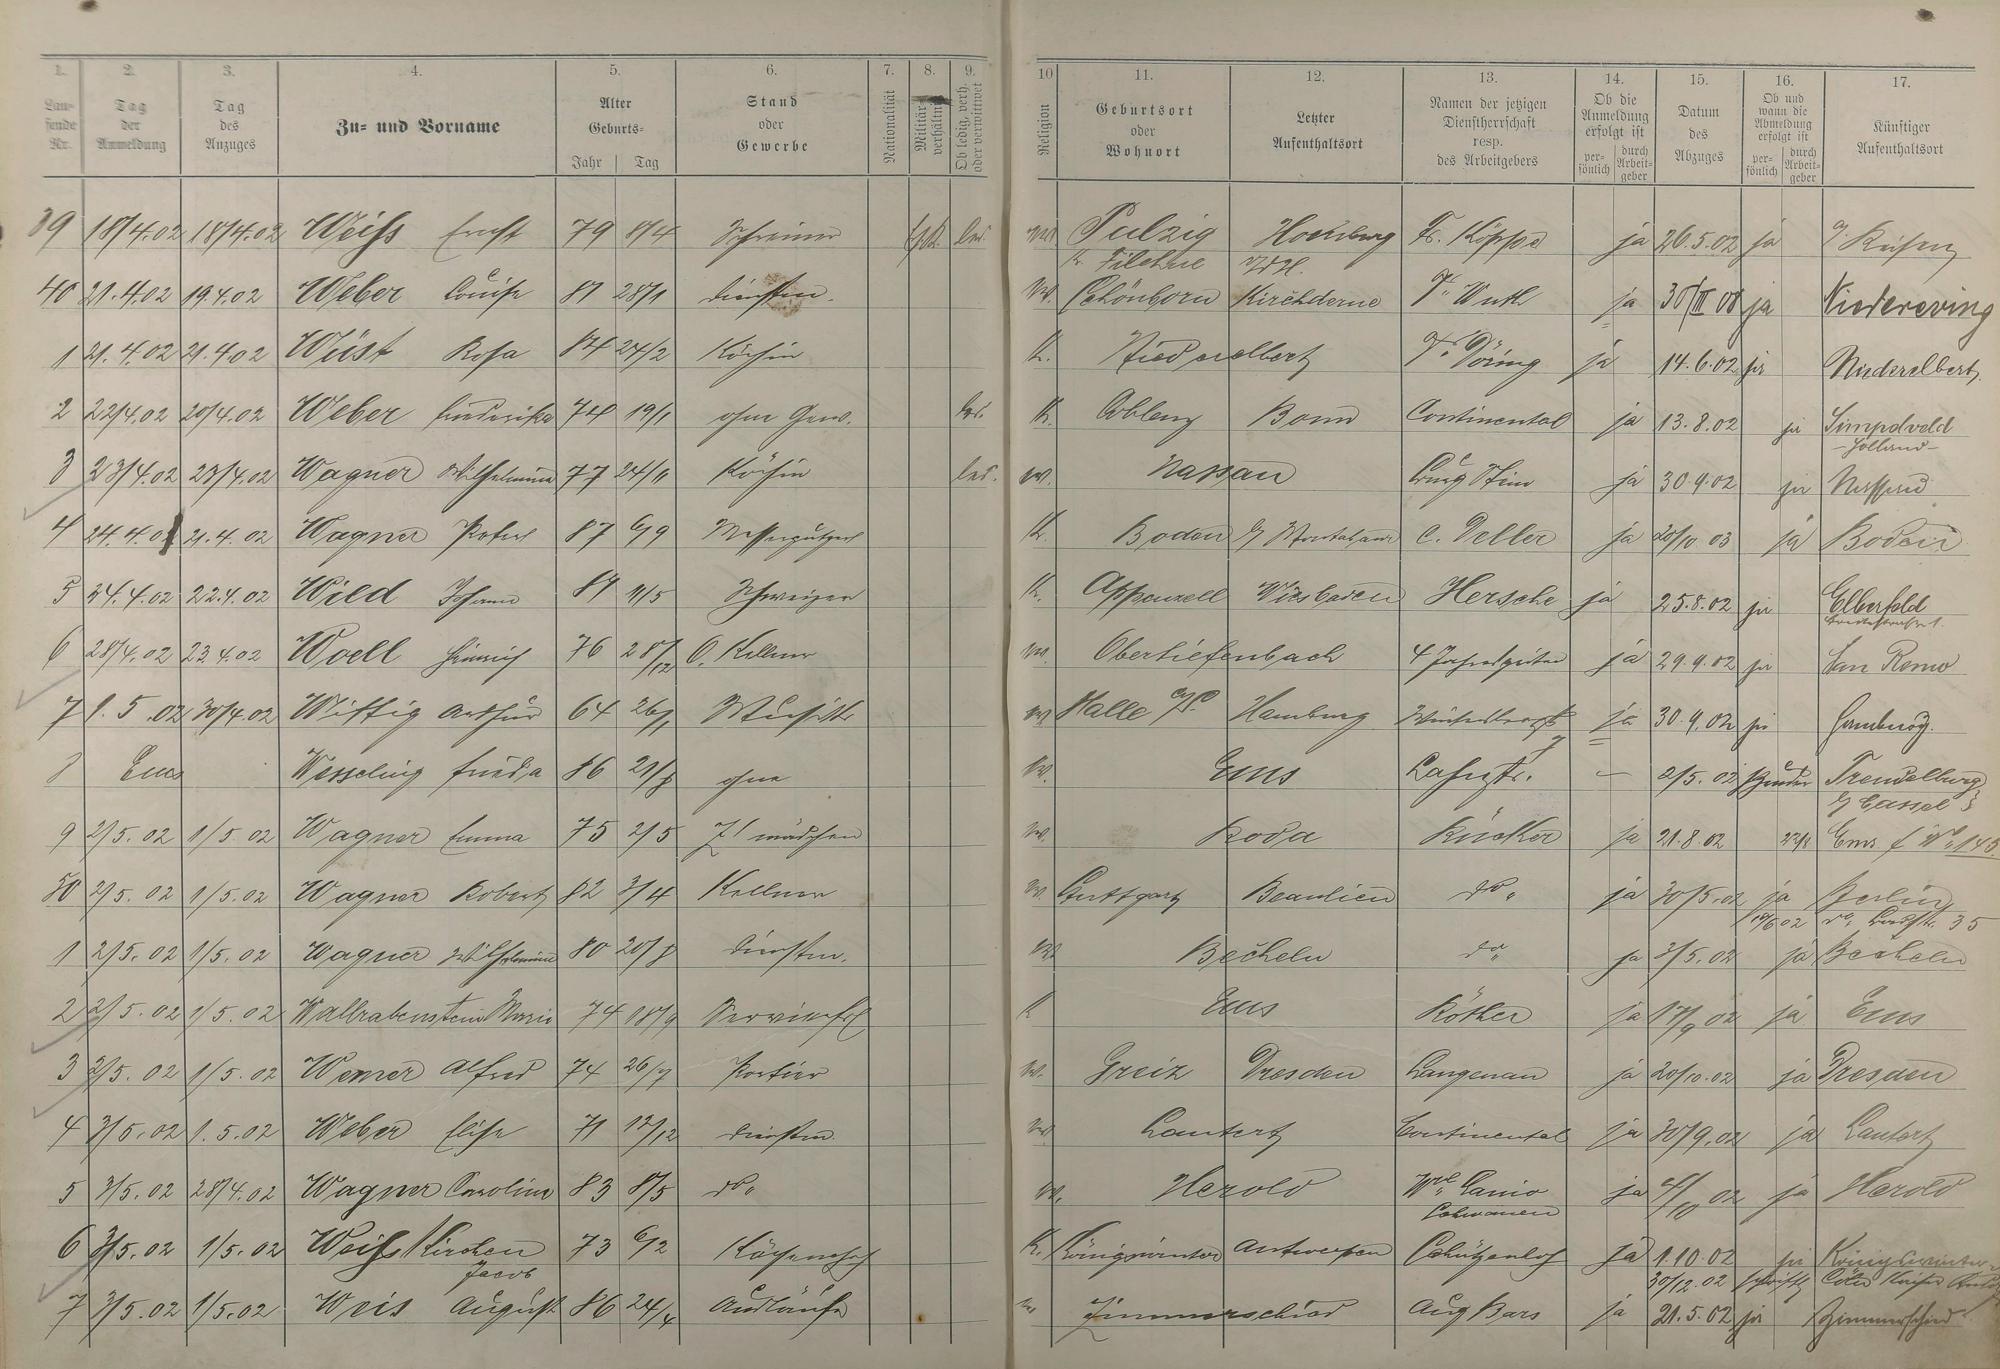 1. 2. 3. 4. 5. 6. 7. 8. 9. 10 11. 12. 13. 14. 15. 16. 17.
Laufende Nr.
Tag der Anmeldung
Tag des Anzuges
Zu- und Vorname
Alter Geburts- Jahr Tag
Stand oder Gewerbe
Nationalität
Militärverhältnis
Ob ledig, verh. oder verwittwet
Religion
Geburtsort oder Wohnort
Letzter Aufenthaltsort
Namen der jetzigen Dienstherrschaft resp. des Arbeitgebers
Ob die Anmeldung erfolgt ist persönlich durch Arbeitgeber
Datum des Abzuges
Ob und wann die Abmeldung erfolgt ist persönlich durch Arbeitgeber
Künftiger Aufenthaltsort
39 18/4.02 18/4.02 Weiss Ernst 79 8/4 Schreiner led. Pulzig Fr. Köppe ja 26.5.02 ja
Kr. Filehne
40 21.4.02 19.4.02 Weber Louise 81 28/1 Dienstm. Schönborn Kirchderne Wuth ja 30/III 08 ja Niedereving
1 21.4.02 21.4.02 Wüst Rosa 84 24/2 Köchin K. Niederelbert Döring ja 14.6.02 ja Niederelbert
2 22/4.02 20/4.02 Weber Friederike 74 19/1 ohne Gew. led. K. Coblenz Bonn Continental ja 13.8.02 ja Simpelveld
-Holland-
3 23/4.02 23/4.02 Wagner Wilhelmine 77 24/11 Köchin led. Nassau ja 30.9.02 ja Nassau
4 24.4.02 21.4.02 Wagner Peter 87 6/9 Messerputzer K. Boden b/ Montabaur C. Deller ja 20/10 03 ja Boden
5 24.4.02 22.4.02 Wild Johann 84 11/5 Schweizer K. Appenzell Wiesbaden Hersche ja 25.8.02 ja Elberfeld
6 28/4.02 23.4.02 Woell Heinrich 76 28/12 O. Kellner Obertiefenbach 4 Jahreszeiten ja 29.9.02 ja San Remo
7 1.5.02 30/4.02 Wittig Arthur 64 26/1 Musiker Halle a/S. Hamburg ja 30.9.02 ja Hamburg.
8 Ems Wesseling Frieda 86 21/8 ohne Ems Lahnstr. 7 — 2/5.02 Trendelburg
b/ Cassel
9 2/5.02 1/5.02 Wagner Emma 75 2/5 Zimmermädchen Roda Rücker ja 21.8.02 Ems No 145
50 2/5.02 1/5.02 Wagner Robert 82 3/4 Kellner Stuttgart Beaulieu do " ja 30/5.02 ja Berlin
35
1 2/5.02 1/5.02 Wagner Wilhelmine 80 20/8 Dienstm. Becheln do " ja 3/5.02 ja Becheln
2 2/5.02 1/5.02 Wallrabenstein Marie 74 18/9 Servierfrl K Ems Röther ja 17/9 02 ja Ems
3 2/5.02 1/5.02 Werner Alfred 74 26/7 Portier Greiz Dresden Langenau ja 20/10.02 ja Dresden
4 3/5.02 1.5.02 Weber Elise 71 17/12 Dienstm. Lautert Continental ja 30/9.02 ja Lautert
5 3/5.02 28/4.02 Wagner Caroline 83 8/5 do " Herold Wwe Canio ja 4/10 02 ja Herold
6 3/5.02 1/5.02 Weisskirchen 73 6/2 Küchenchef K. Königswinter Antwerpen Schützenhof ja 1.10.02 ja Königswinter
Jacob 30/12.02 Cöln
7 3/5.02 1/5.02 Weis August 86 24/4 Ausläufer Zimmerschied Aug Bars ja 21.5.02 ja Zimmerschied